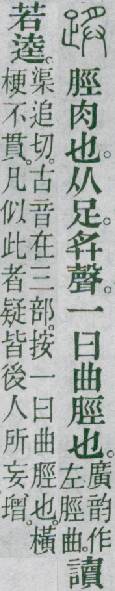 脛肉也。从足。聲。一曰曲脛也。
廣韵作
左脛曲。
讀
若逵。
渠追切。古音在三部。按一曰曲脛也。橫
梗不貫。凡似此者疑皆後人所妄增。